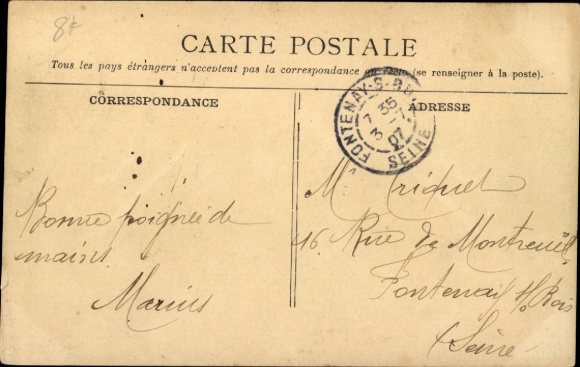 8f
CARTE POSTALE
Tous les pays étrangers n'acceptent pas la correspondance au (se renseigner à la poste).
CORRESPONDANCE
ADRESSE
FONTENAY-S-B
7 35
3 -7
07
SEINE
Bonne poignée de
mains
Marius
Mr Criquet
16 Rue de Montreuil
Fontenay s/s Bois
(Seine